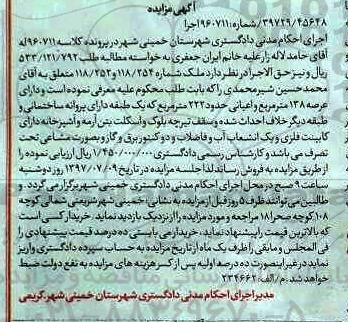 آگهی مزایده
۳۹۷۲۹/۴۵۶۴۸/شماره:۹۶۰۷۱۱اجرا
اجرای احکام مدنی دادگستری شهرستان خمینی شهر در پرونده کلاسه ۹۶۰۷۱۱له
آقای حامد لاله زار علیه خانم ایران جعفری به خواسته مطالبه طلب ۵۳۳/۱۲۱/۷۹۲
ریال و نیز حق الاجرا در نظر دارد ملک شماره ۱۱۸/۲۵۴ و ۱۱۸/۲۵۲ متعلق به آقای
محمد حسین شیر محمدی را که بابت طلب محکوم علیه معرفی نموده است و دارای
عرصه ۱۳۸ مترمربع و اعیانی حدود ۲۲۲ مترمربع که یک طبقه دارای پروانه ساختمانی و
طبقه دیگر خلاف احداث شده و سقف تیرچه بلوک و اسکلت بتن آرمه و آشپزخانه دارای
کابینت فلزی و یک انشعاب آب و فاضلاب و دو کنتور برق و گاز و بصورت مشاعی تحت
تصرف می باشد و کارشناس رسمی دادگستری ۱/۴۵۰/۰۰۰/۰۰۰ ریال ارزیابی نموده را
از طریق مزایده به فروش رساند لذا جلسه مزایده در تاریخ ۱۳۹۷/۰۷/۰۹ روز دوشنبه
ساعت ۹ صبح در محل اجرای احکام مدنی دادگستری خمینی شهر برگزار می گردد و
طالبین می توانند ظرف ۵ روز قبل از مزایده به نشانی: خمینی شهر شریعتی شمالی کوچه
۱۰۸ کوچه صحرا ۱۸ مراجعه و مورد مزایده را از نزدیک بازدید نمایند. خریدار کسی است
که بالاترین قیمت را پیشنهاد نماید، خریدار می بایستی ده درصد قیمت پیشنهادی را
فی المجلس و مابقی را ظرف یک ماه از تاریخ مزایده به حساب سپرده دادگستری واریز
نماید در غیر اینصورت ده درصد اولیه پس از کسر هزینه های مزایده به نفع دولت ضبط
خواهد شد. م/الف: ۲۳۴۶۶۲
مدیر اجرای احکام مدنی دادگستری شهرستان خمینی شهر. کریمی